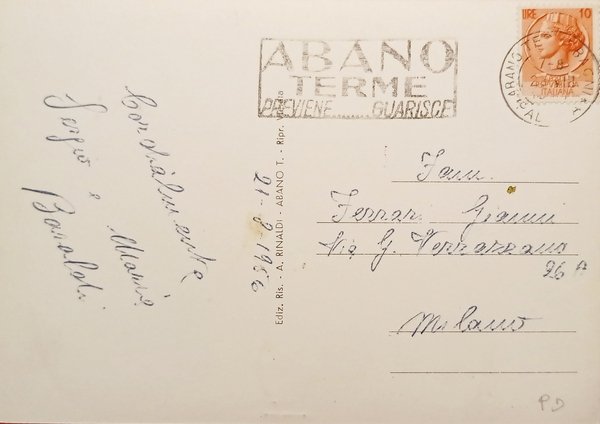 Cordialmente
Sergio e Maria
Baraldi
21-8-1956
Ediz. Ris. - A. RINALDI - ABANO T. - Ripr.
ABANO
TERME
PREVIENE......GUARISCE
LIRE 10
ITALIANA
ABANO TERME
Fam.
Ferrari Gianni
Via G. Verrazzano
26 A
Milano
PD